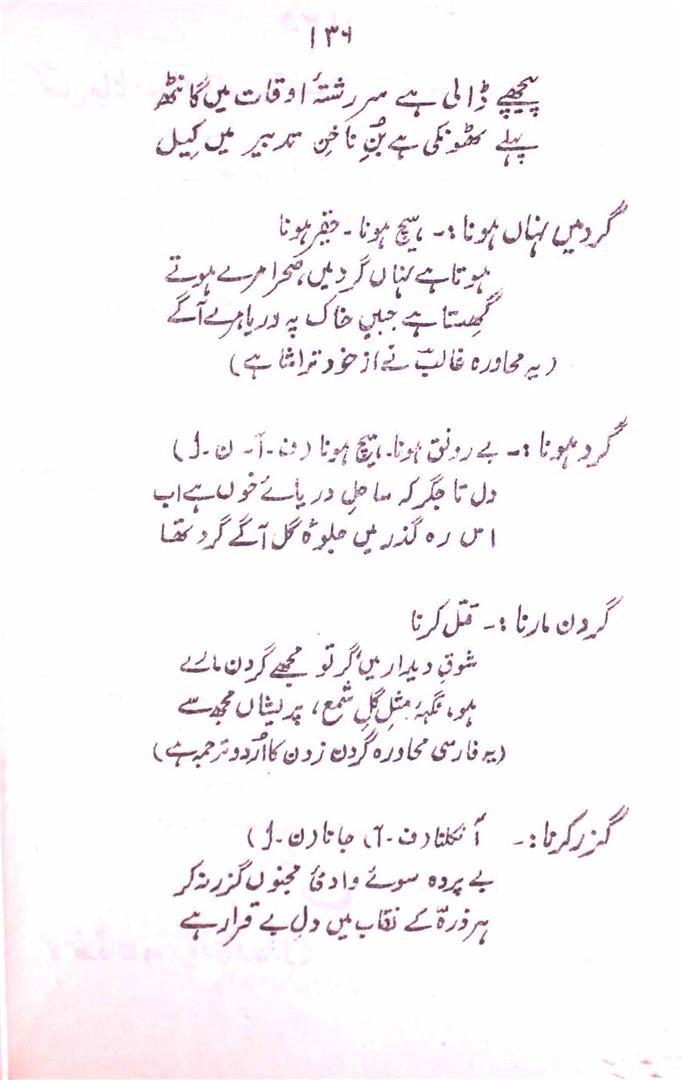 ۱۳۶
پیچھے ڈالی ہے سرِ رشتۂ اوقات میں گانٹھ
پہلے ٹھونکی ہے بُنِ ناخنِ تدبیر میں کیل
گرد میں نہاں ہونا :۔ ہیچ ہونا ۔ حقیر ہونا
ہوتا ہے نہاں گرد میں، صحرا مرے ہوتے
گھستا ہے جبیں خاک پہ دریا مرے آگے
(یہ محاورہ غالبؔ نے از خود تراشا ہے)
گرد ہونا :۔ بے رونق ہونا۔ ہیچ ہونا (ف ۔ آ ۔ ن ۔ ل)
دل تا جگر کہ ساحلِ دریائے خوں ہے اب
اس رہ گذر میں جلوۂ گل آگے گرد تھا
گردن مارنا :۔ قتل کرنا
شوقِ دیدار میں گر تو مجھے گردن مارے
ہو، نگہہ مثلِ گلِ شمع، پریشاں مجھ سے
(یہ فارسی محاورہ گردن زدن کا اُردو ترجمہ ہے)
گزر کرنا :۔ آ نکلنا (ف ۔ آ) جانا (ن ۔ ل)
بے پردہ سوئے وادیٔ مجنوں گزر نہ کر
ہر ذرہّ کے نقاب میں دلِ بے قرار ہے